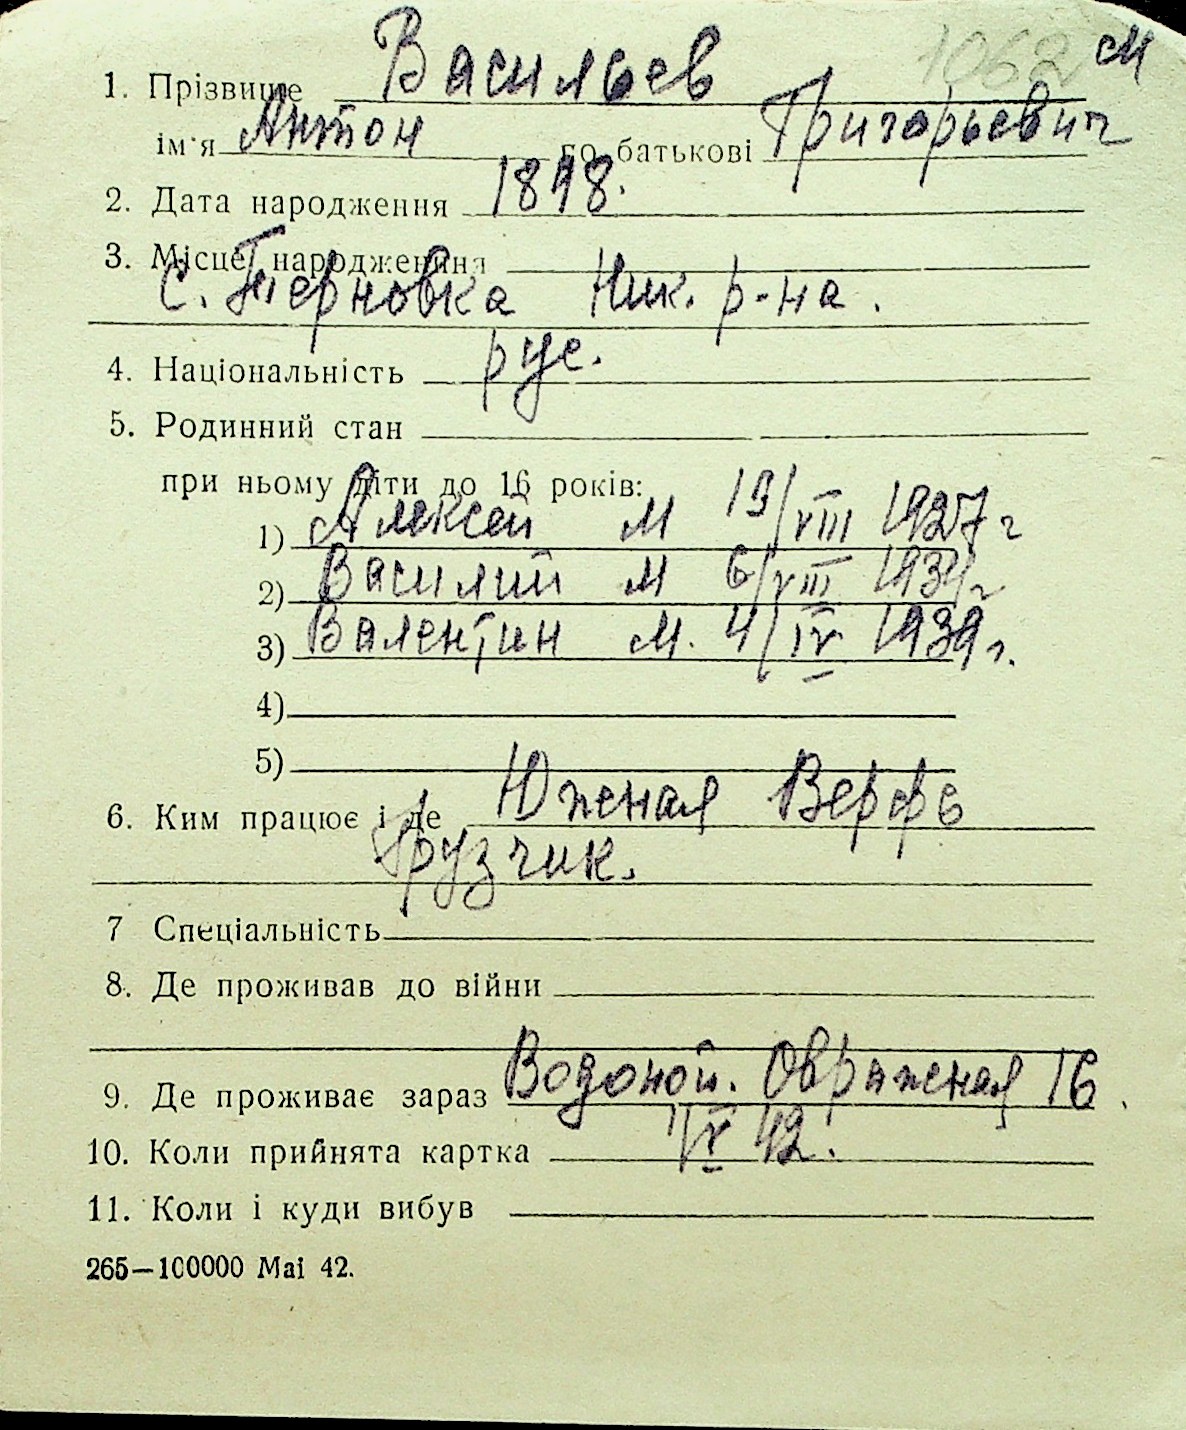 1062 см
1. Прізвище Васильев
ім'я Антон по батькові Григорьевич
2. Дата народження 1898.
3. Місце народження
с. Терновка Ник. р-на.
4. Національність рус.
5. Родинний стан
при ньому діти до 16 років:
1) Алексей м 19/VIII 1927 г
2) Василий м 6/VIII 1934 г
3) Валентин м. 4/IV 1939 г.
4)
5)
6. Ким працює і де Южная Верфь
Грузчик.
7 Спеціальність
8. Де проживав до війни
9. Де проживає зараз Водопой. Овражная 16.
10. Коли прийнята картка V 42.
11. Коли і куди вибув
265—100000 Mai 42.